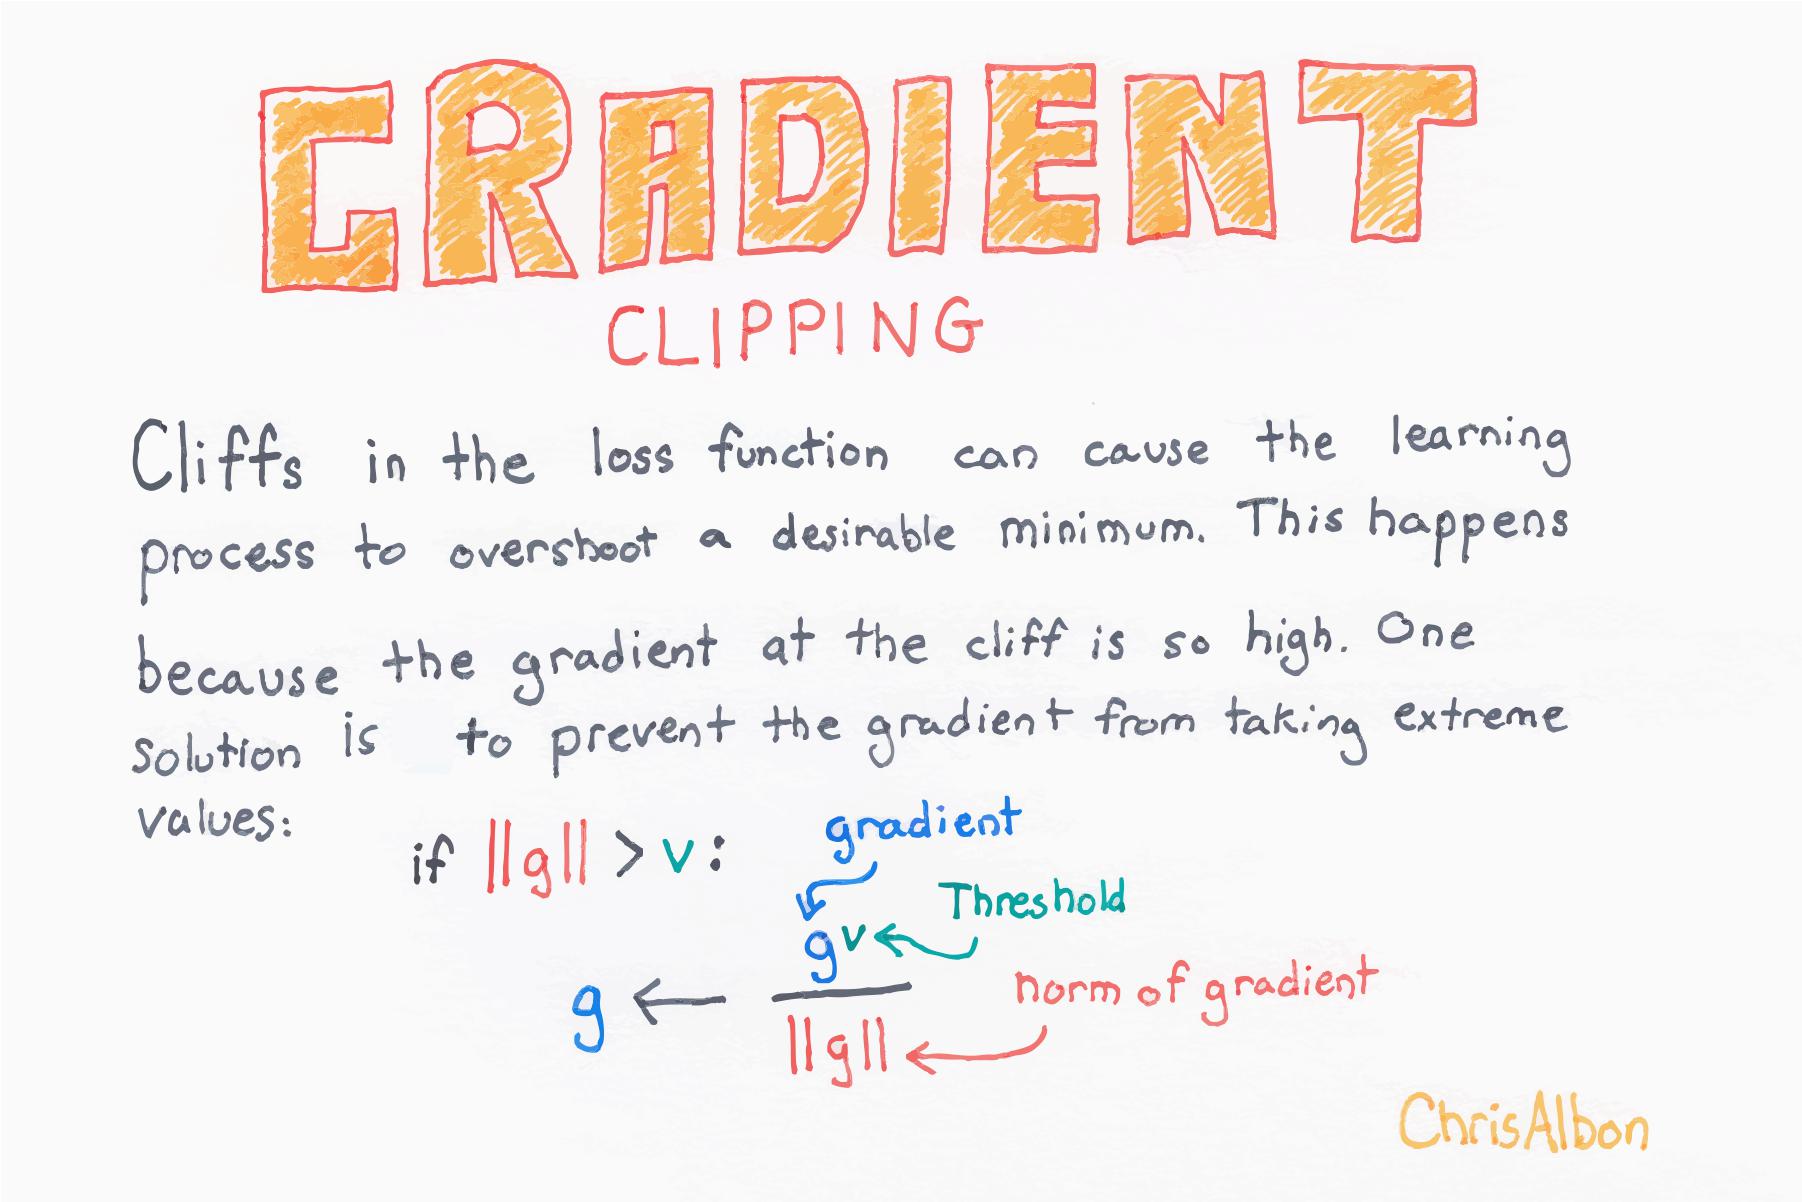 GRADIENT
CLIPPING
Cliffs in the loss function can cause the learning
process to overshoot a desirable minimum. This happens
because the gradient at the cliff is so high. One
solution is to prevent the gradient from taking extreme
values:
if ||g|| > v :
gradient
Threshold
g ← gv / ||g||
norm of gradient
ChrisAlbon